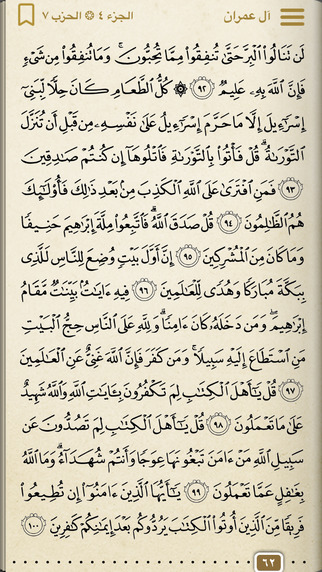 آل عمران الجزء ٤ ۞ الحزب ٧
لَن تَنَالُوا۟ ٱلْبِرَّ حَتَّىٰ تُنفِقُوا۟ مِمَّا تُحِبُّونَ ۚ وَمَا تُنفِقُوا۟ مِن شَىْءٍ
فَإِنَّ ٱللَّهَ بِهِۦ عَلِيمٌ ٩٢ ۞ كُلُّ ٱلطَّعَامِ كَانَ حِلًّا لِّبَنِىٓ
إِسْرَٰٓءِيلَ إِلَّا مَا حَرَّمَ إِسْرَٰٓءِيلُ عَلَىٰ نَفْسِهِۦ مِن قَبْلِ أَن تُنَزَّلَ
ٱلتَّوْرَىٰةُ ۗ قُلْ فَأْتُوا۟ بِٱلتَّوْرَىٰةِ فَٱتْلُوهَآ إِن كُنتُمْ صَٰدِقِينَ
٩٣ فَمَنِ ٱفْتَرَىٰ عَلَى ٱللَّهِ ٱلْكَذِبَ مِنۢ بَعْدِ ذَٰلِكَ فَأُو۟لَٰٓئِكَ
هُمُ ٱلظَّٰلِمُونَ ٩٤ قُلْ صَدَقَ ٱللَّهُ ۗ فَٱتَّبِعُوا۟ مِلَّةَ إِبْرَٰهِيمَ حَنِيفًا
وَمَا كَانَ مِنَ ٱلْمُشْرِكِينَ ٩٥ إِنَّ أَوَّلَ بَيْتٍ وُضِعَ لِلنَّاسِ لَلَّذِى
بِبَكَّةَ مُبَارَكًا وَهُدًى لِّلْعَٰلَمِينَ ٩٦ فِيهِ ءَايَٰتٌۢ بَيِّنَٰتٌ مَّقَامُ
إِبْرَٰهِيمَ ۖ وَمَن دَخَلَهُۥ كَانَ ءَامِنًا ۗ وَلِلَّهِ عَلَى ٱلنَّاسِ حِجُّ ٱلْبَيْتِ
مَنِ ٱسْتَطَاعَ إِلَيْهِ سَبِيلًا ۚ وَمَن كَفَرَ فَإِنَّ ٱللَّهَ غَنِىٌّ عَنِ ٱلْعَٰلَمِينَ
٩٧ قُلْ يَٰٓأَهْلَ ٱلْكِتَٰبِ لِمَ تَكْفُرُونَ بِـَٔايَٰتِ ٱللَّهِ وَٱللَّهُ شَهِيدٌ
عَلَىٰ مَا تَعْمَلُونَ ٩٨ قُلْ يَٰٓأَهْلَ ٱلْكِتَٰبِ لِمَ تَصُدُّونَ عَن
سَبِيلِ ٱللَّهِ مَنْ ءَامَنَ تَبْغُونَهَا عِوَجًا وَأَنتُمْ شُهَدَآءُ ۗ وَمَا ٱللَّهُ
بِغَٰفِلٍ عَمَّا تَعْمَلُونَ ٩٩ يَٰٓأَيُّهَا ٱلَّذِينَ ءَامَنُوٓا۟ إِن تُطِيعُوا۟
فَرِيقًا مِّنَ ٱلَّذِينَ أُوتُوا۟ ٱلْكِتَٰبَ يَرُدُّوكُم بَعْدَ إِيمَٰنِكُمْ كَٰفِرِينَ ١٠٠
٦٢